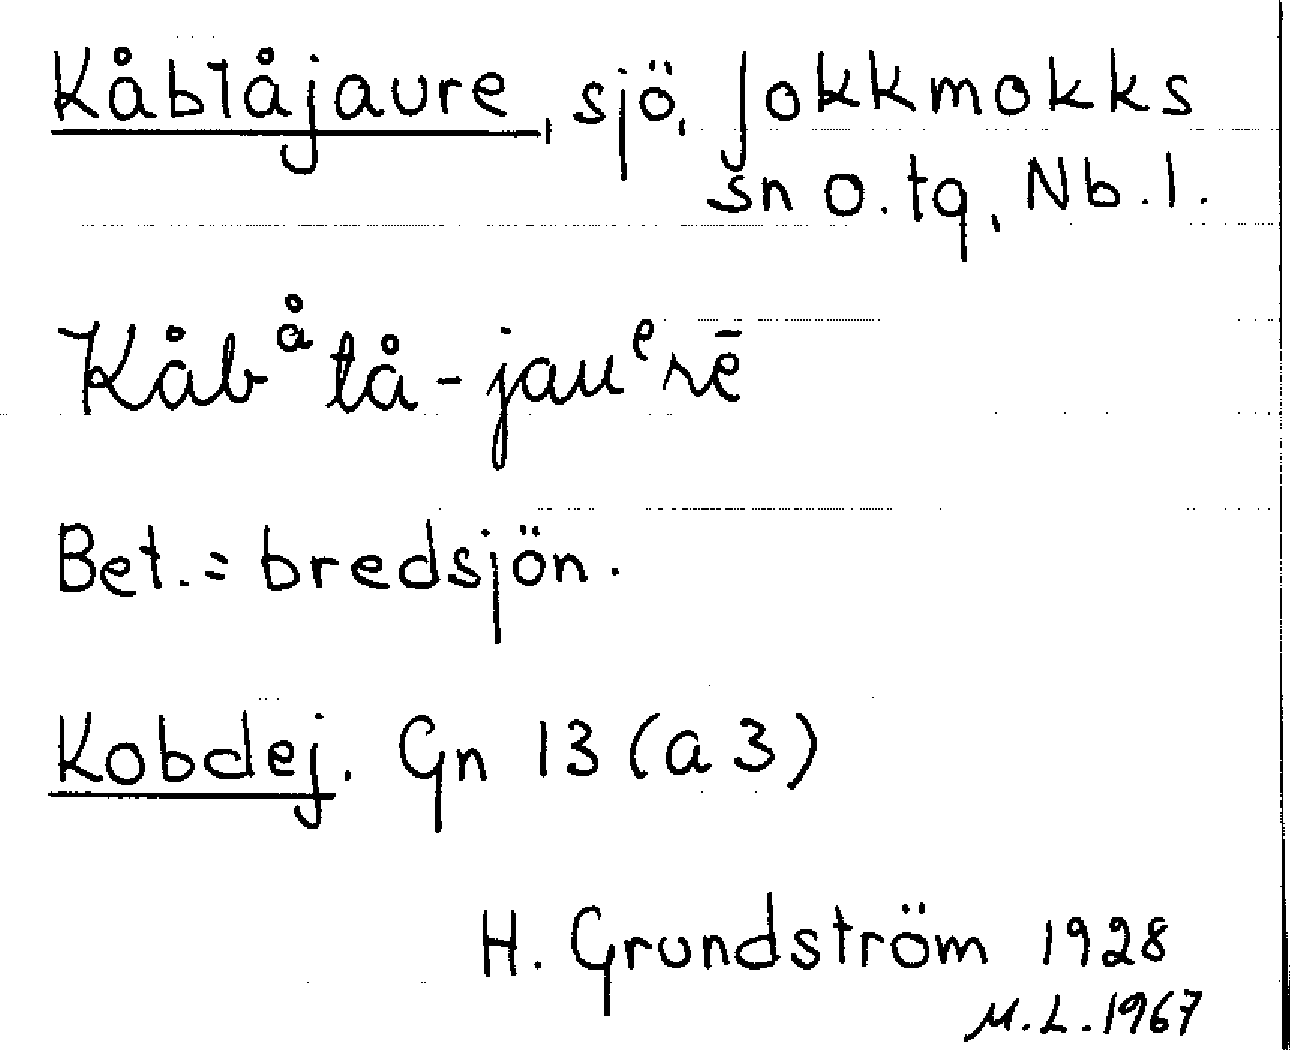 Kåbtåjaure, sjö, Jokkmokks
sn o. tg, Nb. l.
Kåbåtå-jauerē
Bet. = bredsjön.
Kobdej. Gn 13 (a 3)
H. Grundström 1928
M. L. 1967